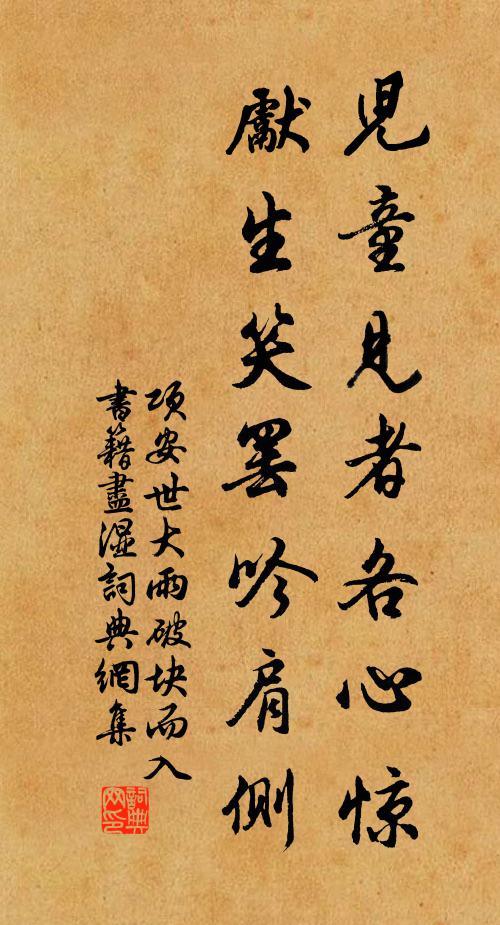 兒童見者各心惊
獻生笑罷吟肩側
項安世大雨破块而入
書籍盡湿詞典網集
詞典网印